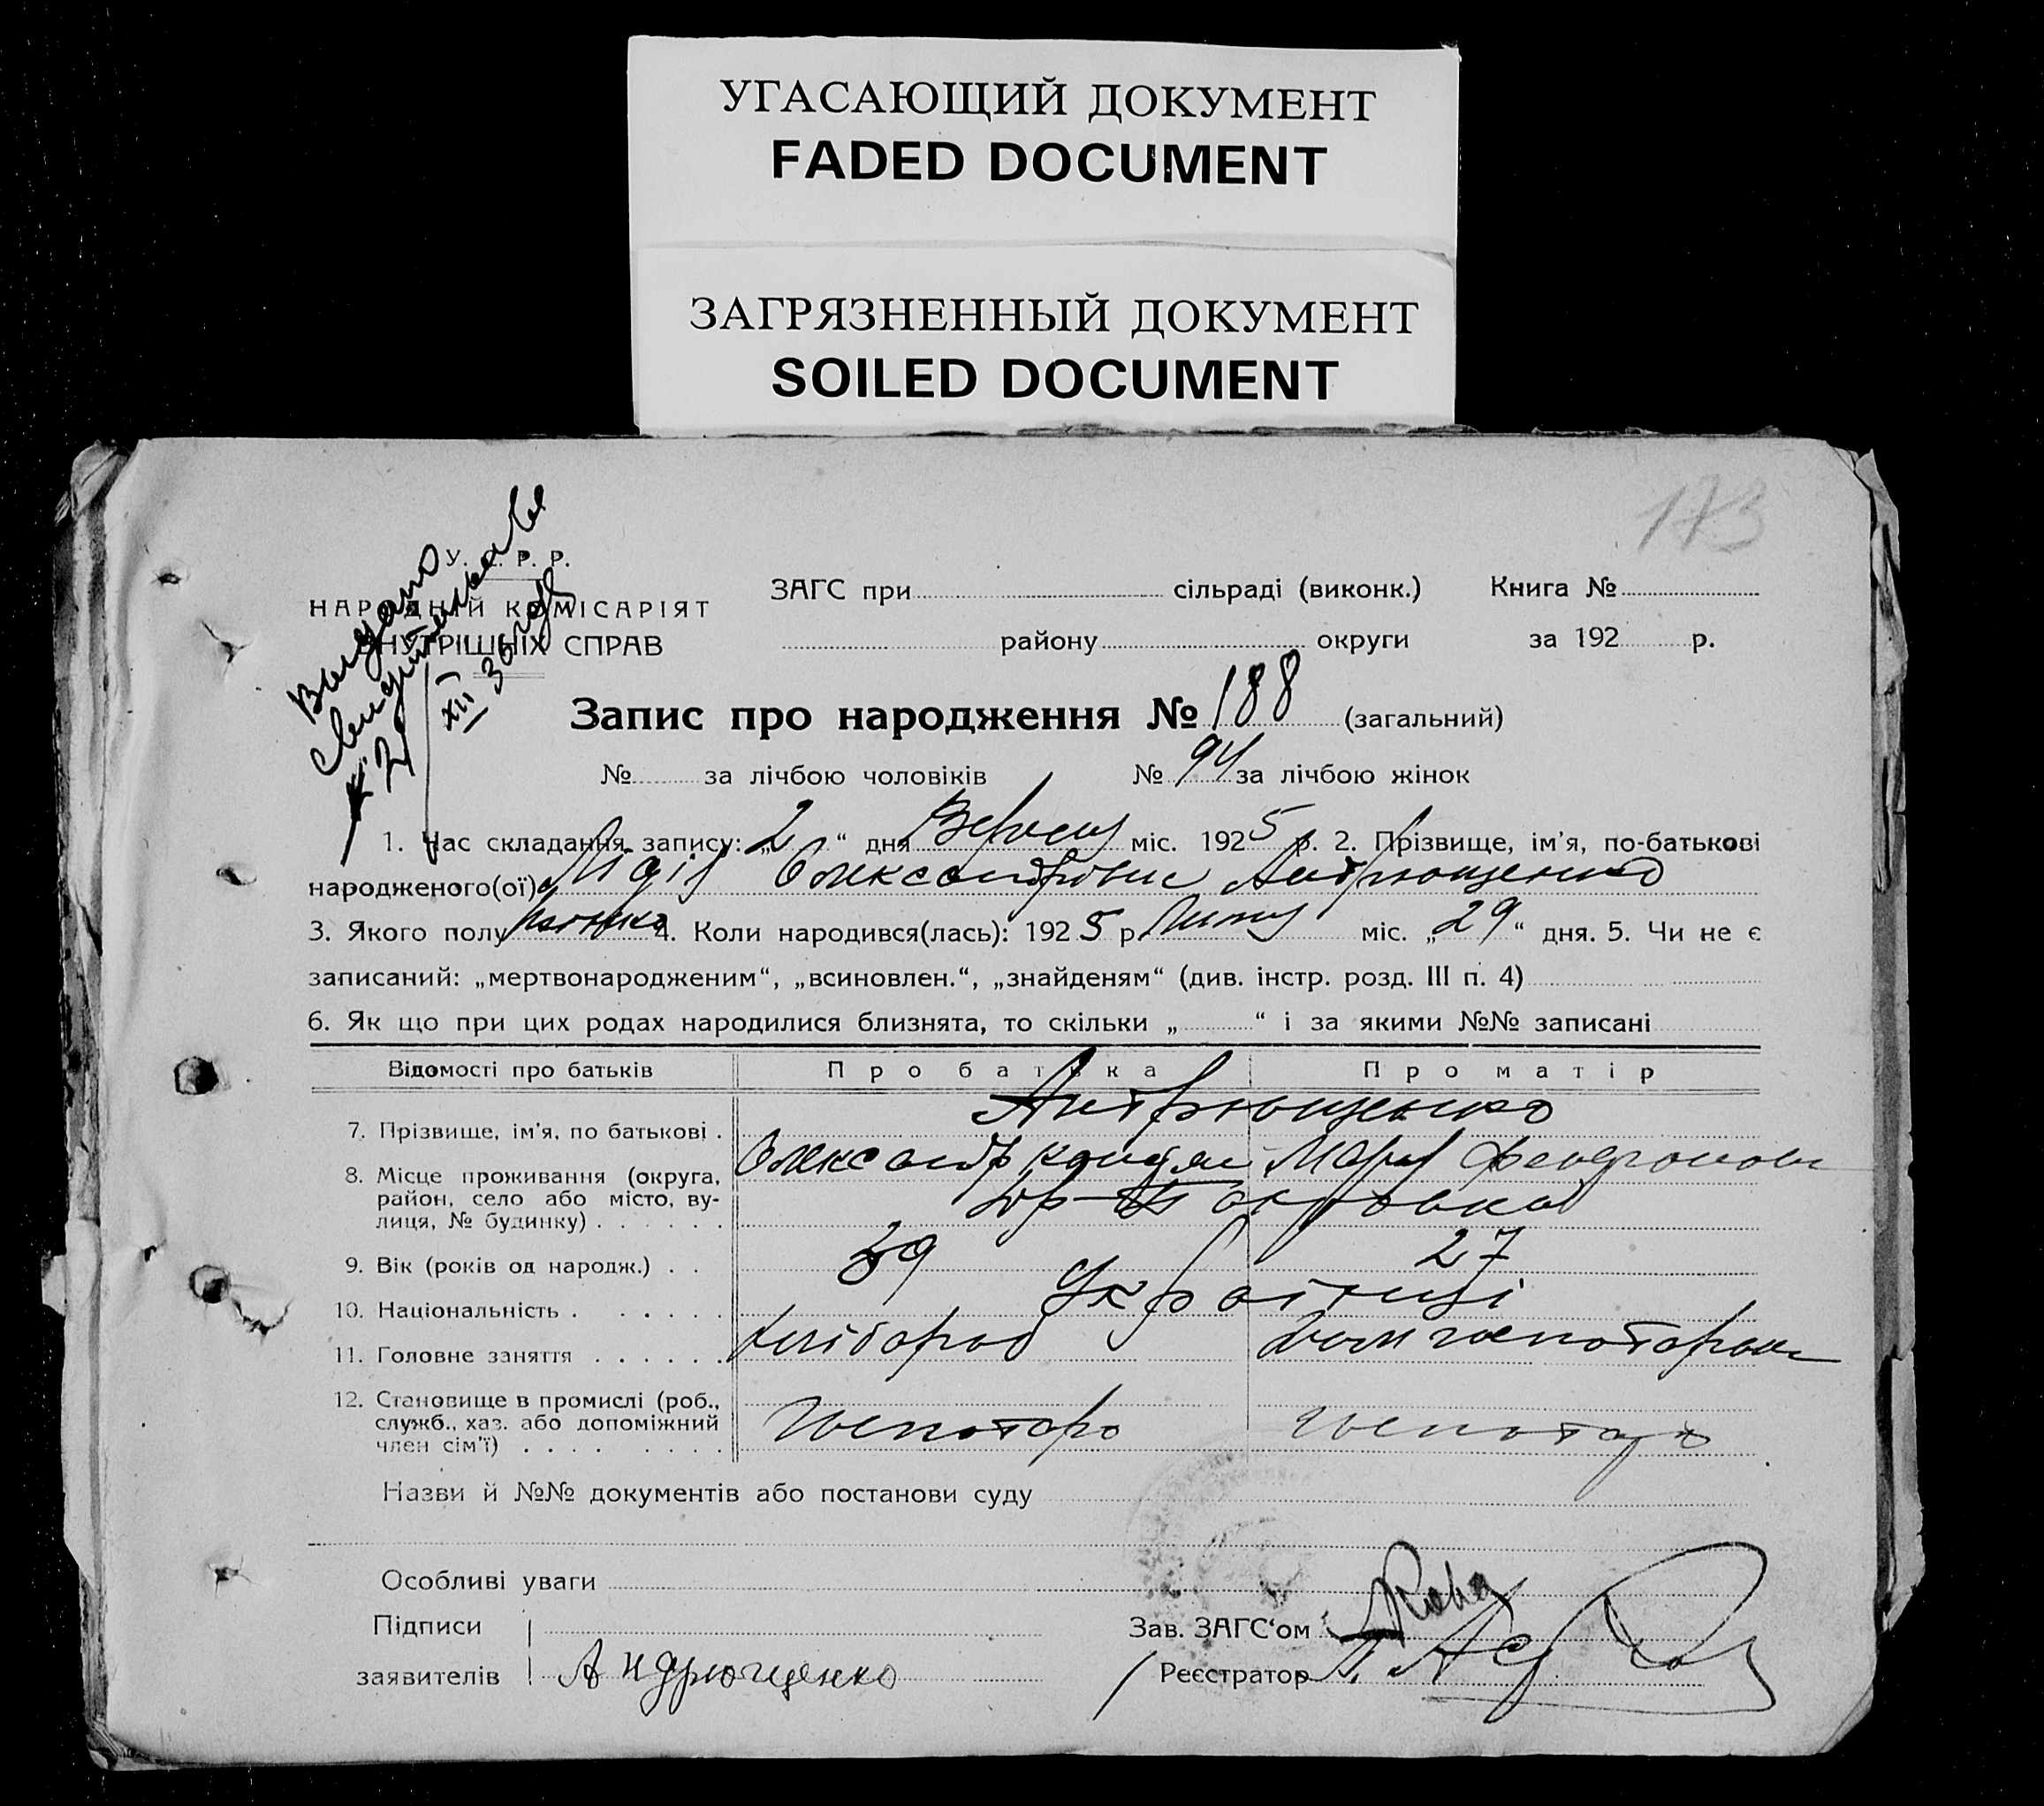 УГАСАЮЩИЙ ДОКУМЕНТ
FADED DOCUMENT
ЗАГРЯЗНЕННЫЙ ДОКУМЕНТ
SOILED DOCUMENT
173
Видано
У. С. Р. Р.
НАРОДНІЙ КОМІСАРІЯТ
ВНУТРІШНІХ СПРАВ
XII 36
ЗАГС при сільраді (виконк.) Книга №
району округи за 192 р.
Запис про народження № 188 (загальний)
№ за лічбою чоловіків № 94 за лічбою жінок
1. Час складання запису: „2“ дня Вересня міс. 1925 р. 2. Прізвище, ім'я, по-батькові
народженого(ої) Лідія Олександрівна Андрющенко
3. Якого полу жіноко 4. Коли народився(лась): 1925 р. Липня міс. „29“ дня. 5. Чи не є
записаний: „мертвонародженим“, „всиновлен.“, „знайденям“ (див. інстр. розд. III п. 4)
6. Як що при цих родах народилися близнята, то скільки „ “ і за якими №№ записані
Відомості про батьків Про батька Про матір
Андрющенко
7. Прізвище, ім'я, по батькові .
Олександр Мария
8. Місце проживання (округа, район, село або місто, вулиця, № будинку) . . . . . .
9. Вік (років од народж.) . . 39 27
10. Національність . . . . . . Українці
11. Головне заняття . . . . . . хлібороб
12. Становище в промислі (роб., служб., хаз. або допоміжний член сім'ї) . . . . . . . .
Назви й №№ документів або постанови суду
Особливі уваги
Підписи
заявителів Андрющенко
Зав. ЗАГС'ом
Реєстратор